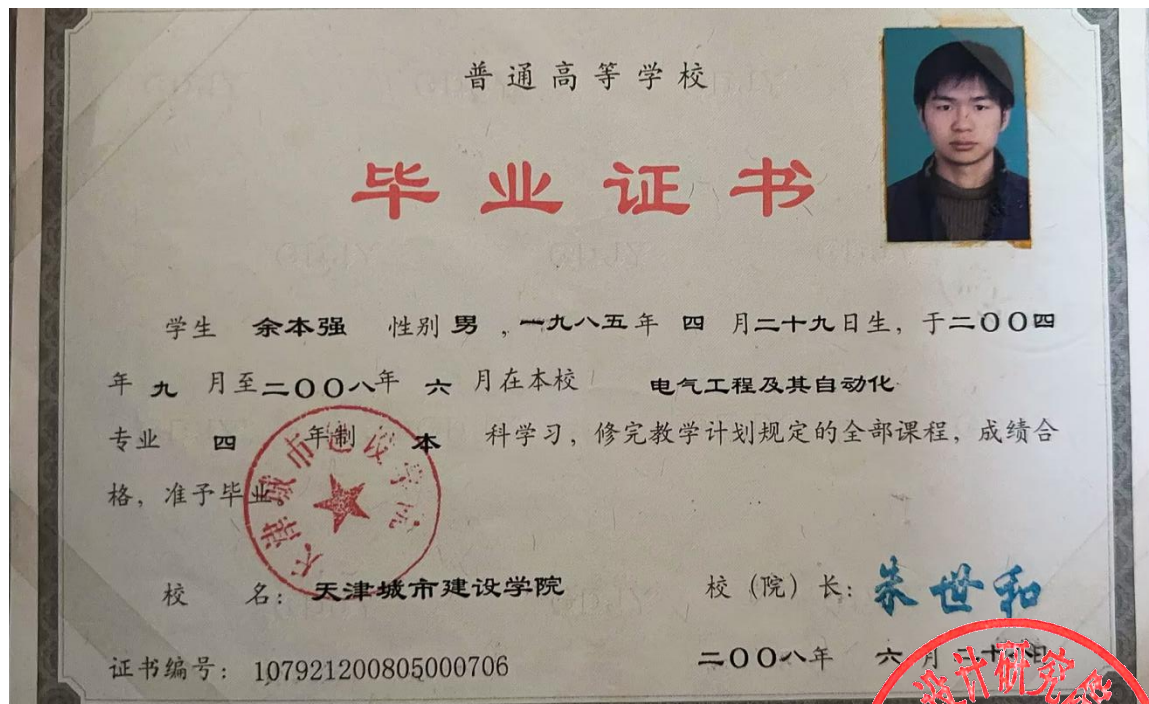 普通高等学校
毕业证书
学生 余本强 性别 男 ,一九八五年 四 月二十九日生，于二〇〇四
年 九 月至二〇〇八年 六 月在本校 电气工程及其自动化
专业 四 年制 本 科学习，修完教学计划规定的全部课程，成绩合
格，准予毕业。
天津城市建设学院
校 名：天津城市建设学院
校（院）长：朱世和
证书编号：107921200805000706
二〇〇八年 六 月 二十 日
设计研究